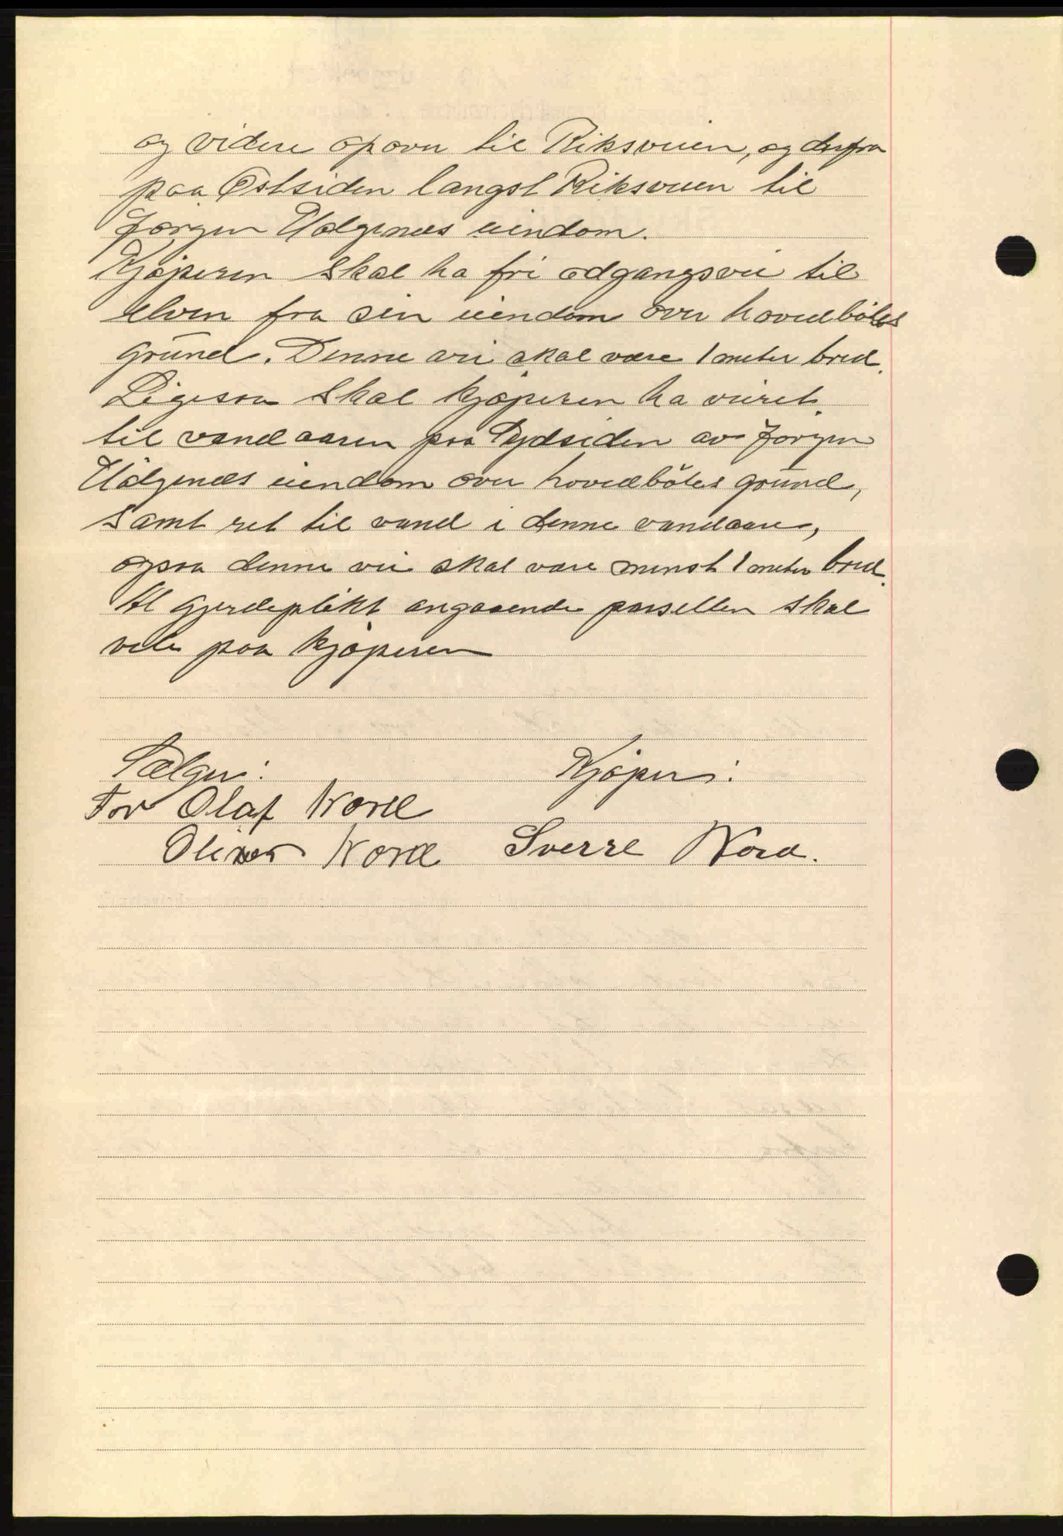 og videre opover til Riksveien, og derfra
paa Østsiden langst Riksveien til
Jørgen Helgenæs eiendom.
Kjøperen skal ha fri adgangsvei til
elven fra sin eiendom over hovedbölets
grund. Denne vei skal være 1 meter bred.
Ligesaa skal kjøperen ha veiret
til vandaaren paa Sydsiden av Jørgen
Helgenæs eiendom over hovedbölets grund,
samt ret til vand i denne vandaare,
ogsaa denne vei skal være minst 1 meter bred.
Al gjerdeplikt angaaende parsellen skal
vile paa kjøperen
Sælger: Kjøper:
For Olaf Nord
Nord Sverre Nord.